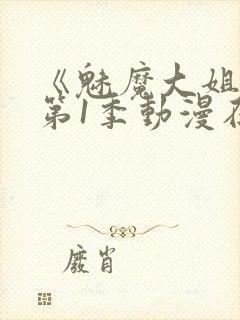 《魅魔大姐
第1季動漫在
廢肖